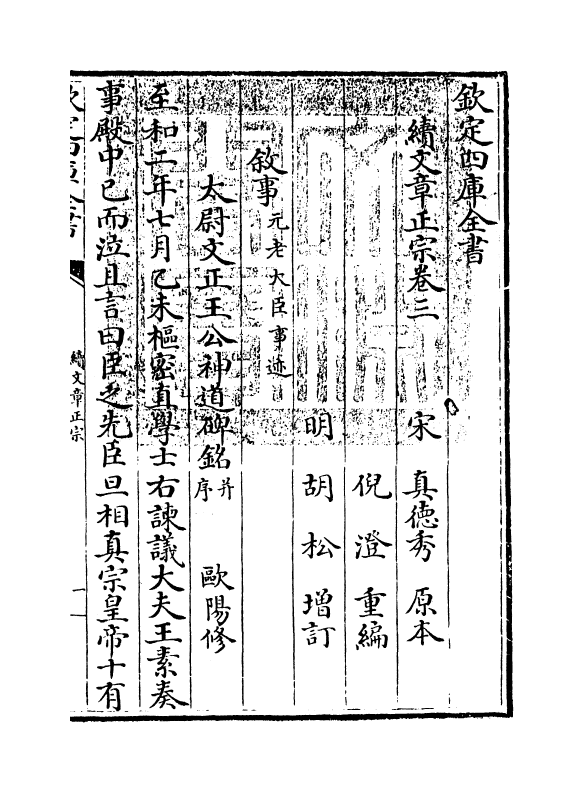 欽定四庫全書
續文章正宗卷三
宋 真德秀 原本
倪澄 重編
明 胡松 增訂
敘事元老大臣事迹
太尉文正王公神道碑銘并序 歐陽修
至和二年七月乙未樞密直學士右諫議大夫王素奏
事殿中已而泣且言曰臣之先臣旦相真宗皇帝十有
續文章正宗